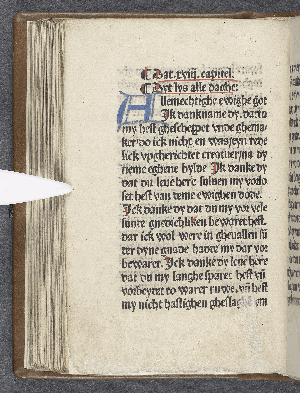 ¶ Dat. xviij. capitel.
¶ Dyt lys alle dache:
Allemechtighe ewighe got
Jk danke dy. dattu
my hest gheschapet vnde ghema-
ket do ick nicht en was, eyn rede
lick vpgherichtet creatuer, na dy
neme eghene bylde. Jk danke dy
dat du leue here sulven my vorlo
set hest van deme ewighen dode.
Jck danke dy dat du my vor vele
sunte gnedichliken bewaret hest.
dar ick wol were in gheuallen sū
ter dyne gnade haddet my dar vor
bewaret. Jck danke dy leue here
dat du my langhe sparet hest vn̄
vorbeydet to waret ruwe. vn̄ hest
my nicht hastighen ghe